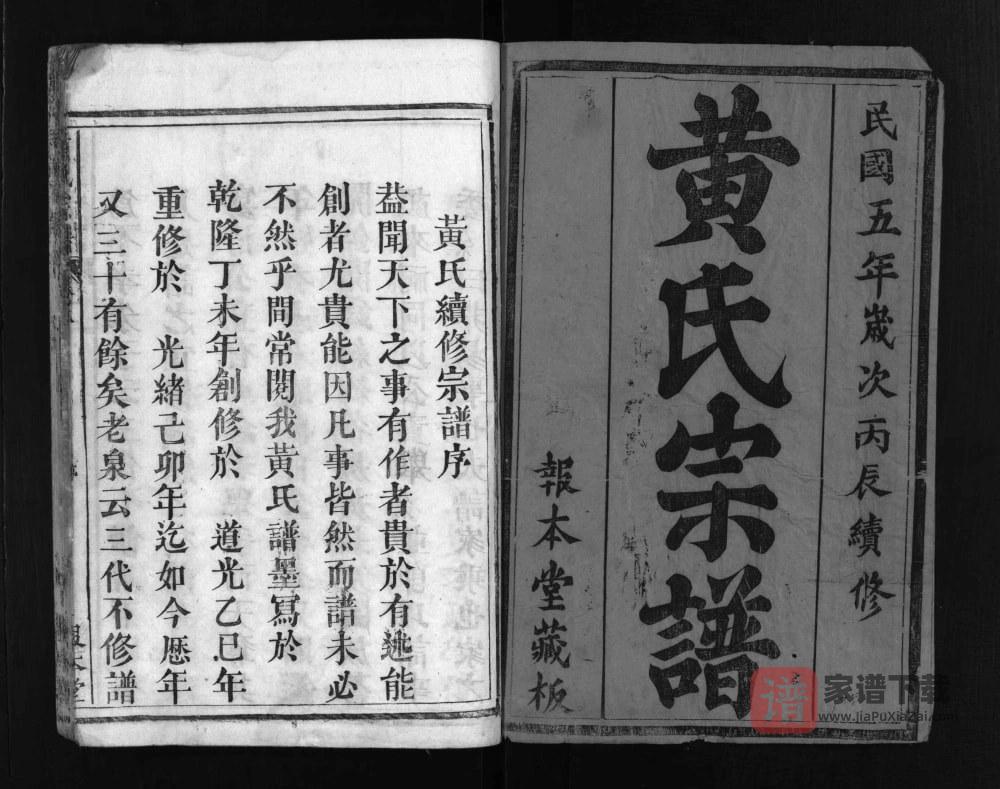 民國五年歲次丙辰續修
黃氏宗譜
報本堂藏板
黃氏續修宗譜序
蓋聞天下之事有作者貴於有述能
創者尤貴能因凡事皆然而譜未必
不然乎間常閱我黃氏譜墨寫於
乾隆丁未年創修於　道光乙巳年
重修於　光緒己卯年迄如今歷年
又三十有餘矣老泉云三代不修譜
谱
家谱下载
www.jiaPuXiaZai.com